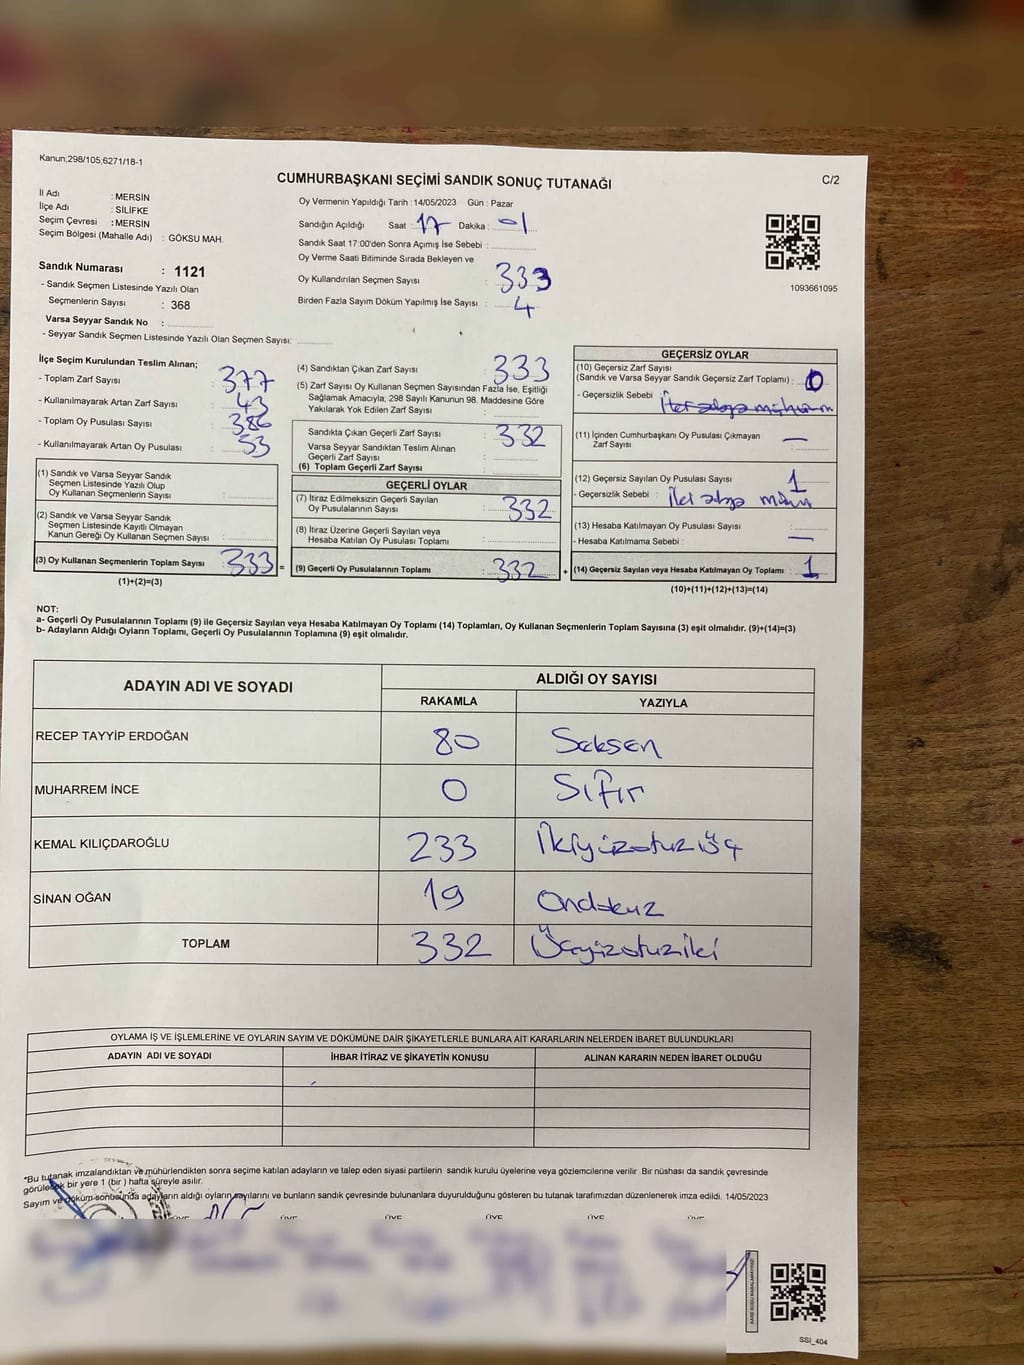 Kanun;298/105;6271/18-1
CUMHURBAŞKANI SEÇİMİ SANDIK SONUÇ TUTANAĞI
C/2
İl Adı : MERSİN
İlçe Adı : SİLİFKE
Seçim Çevresi : MERSİN
Seçim Bölgesi (Mahalle Adı) : GÖKSU MAH.
Sandık Numarası : 1121
- Sandık Seçmen Listesinde Yazılı Olan
Seçmenlerin Sayısı : 368
Varsa Seyyar Sandık No :
- Seyyar Sandık Seçmen Listesinde Yazılı Olan Seçmen Sayısı:
Oy Vermenin Yapıldığı Tarih : 14/05/2023 Gün : Pazar
Sandığın Açıldığı Saat : 17 Dakika : 01
Sandık Saat 17:00'den Sonra Açımış İse Sebebi :
Oy Verme Saati Bitiminde Sırada Bekleyen ve
Oy Kullandırılan Seçmen Sayısı : 333
Birden Fazla Sayım Döküm Yapılmış İse Sayısı : 4
1093661095
İlçe Seçim Kurulundan Teslim Alınan;
- Toplam Zarf Sayısı : 377
- Kullanılmayarak Artan Zarf Sayısı : 43
- Toplam Oy Pusulası Sayısı : 386
- Kullanılmayarak Artan Oy Pusulası : 53
(1) Sandık ve Varsa Seyyar Sandık
Seçmen Listesinde Yazılı Olup
Oy Kullanan Seçmenlerin Sayısı :
(2) Sandık ve Varsa Seyyar Sandık
Seçmen Listesinde Kayıtlı Olmayan
Kanun Gereği Oy Kullanan Seçmen Sayısı :
(3) Oy Kullanan Seçmenlerin Toplam Sayısı : 333 =
(1)+(2)=(3)
(4) Sandıktan Çıkan Zarf Sayısı : 333
(5) Zarf Sayısı Oy Kullanan Seçmen Sayısından Fazla İse, Eşitliği
Sağlamak Amacıyla; 298 Sayılı Kanunun 98. Maddesine Göre
Yakılarak Yok Edilen Zarf Sayısı :
Sandıkta Çıkan Geçerli Zarf Sayısı : 332
Varsa Seyyar Sandıktan Teslim Alınan
Geçerli Zarf Sayısı :
(6) Toplam Geçerli Zarf Sayısı :
GEÇERLİ OYLAR
(7) İtiraz Edilmeksizin Geçerli Sayılan
Oy Pusulalarının Sayısı : 332
(8) İtiraz Üzerine Geçerli Sayılan veya
Hesaba Katılan Oy Pusulası Toplamı :
(9) Geçerli Oy Pusulalarının Toplamı : 332 +
GEÇERSİZ OYLAR
(10) Geçersiz Zarf Sayısı
(Sandık ve Varsa Seyyar Sandık Geçersiz Zarf Toplamı) : 0
- Geçersizlik Sebebi :
(11) İçinden Cumhurbaşkanı Oy Pusulası Çıkmayan
Zarf Sayısı : —
(12) Geçersiz Sayılan Oy Pusulası Sayısı : 1
- Geçersizlik Sebebi : İki
(13) Hesaba Katılmayan Oy Pusulası Sayısı :
- Hesaba Katılmama Sebebi : —
(14) Geçersiz Sayılan veya Hesaba Katılmayan Oy Toplamı : 1
(10)+(11)+(12)+(13)=(14)
NOT:
a- Geçerli Oy Pusulalarının Toplamı (9) ile Geçersiz Sayılan veya Hesaba Katılmayan Oy Toplamı (14) Toplamları, Oy Kullanan Seçmenlerin Toplam Sayısına (3) eşit olmalıdır. (9)+(14)=(3)
b- Adayların Aldığı Oyların Toplamı, Geçerli Oy Pusulalarının Toplamına (9) eşit olmalıdır.
ADAYIN ADI VE SOYADI
ALDIĞI OY SAYISI
RAKAMLA YAZIYLA
RECEP TAYYİP ERDOĞAN 80 Seksen
MUHARREM İNCE 0 Sıfır
KEMAL KILIÇDAROĞLU 233 İkiyüzotuzüç
SİNAN OĞAN 19 Ondokuz
TOPLAM 332 Üçyüzotuziki
OYLAMA İŞ VE İŞLEMLERİNE VE OYLARIN SAYIM VE DÖKÜMÜNE DAİR ŞİKAYETLERLE BUNLARA AİT KARARLARIN NELERDEN İBARET BULUNDUKLARI
ADAYIN ADI VE SOYADI İHBAR İTİRAZ VE ŞİKAYETİN KONUSU ALINAN KARARIN NEDEN İBARET OLDUĞU
*Bu tutanak imzalandıktan ve mühürlendikten sonra seçime katılan adayların ve talep eden siyasi partilerin sandık kurulu üyelerine veya gözlemcilerine verilir. Bir nüshası da sandık çevresinde
görülecek bir yere 1 (bir ) hafta süreyle asılır.
Sayım ve döküm sonbaunda adayların aldığı oyların sayılarını ve bunların sandık çevresinde bulunanlara duyurulduğunu gösteren bu tutanak tarafımızdan düzenlenerek imza edildi. 14/05/2023
ÜYE ÜYE ÜYE ÜYE ÜYE ÜYE
SSI_404